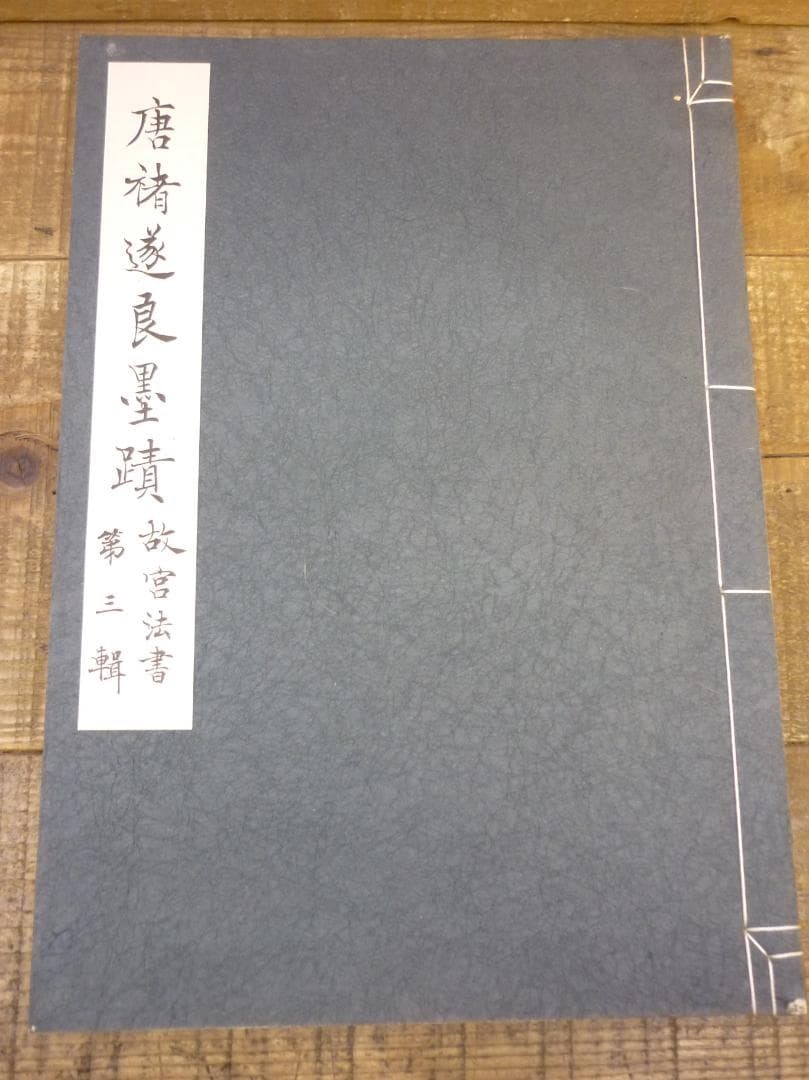 唐褚遂良墨蹟
故宮法書
第三輯